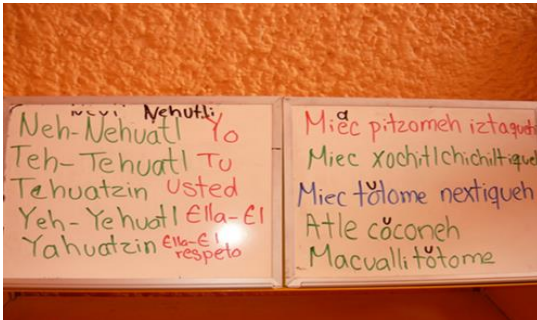 Nehutli
Neh-Nehuatl Yo
Teh-Tehuatl Tu
Tehuatzin Usted
Yeh-Yehuatl Ella-El
Yahuatzin Ella-El respeto
Miec pitzomeh
Miec xochitl chichiltiqueh
Miec tŏtome nextiqueh
Atle cŏconeh
Macualli tŏtome